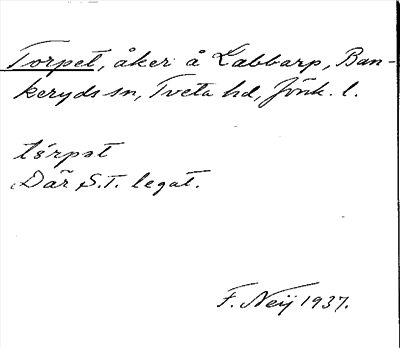 Torpet, åker å Labbarp, Ban-
keryds sn, Tveta hd, Jönk. l.
tórpət
Där S.T. legat.
F. Neij 1937.